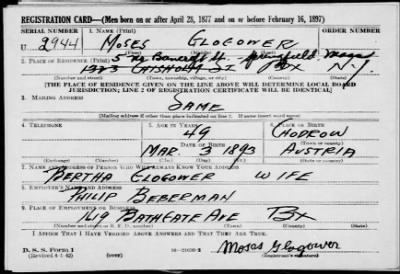 REGISTRATION CARD—(Men born on or after April 28, 1877 and on or before February 16, 1897)
SERIAL NUMBER 1. NAME (Print)
U 2944 MOSES GLOGOWER
5 Bancroft St. Springfield Mass
2. PLACE OF RESIDENCE (Print)
CHISHOLM ST BX N.Y.
(Number and street) (Town, township, village, or city) (County) (State)
[THE PLACE OF RESIDENCE GIVEN ON THE LINE ABOVE WILL DETERMINE LOCAL BOARD
JURISDICTION; LINE 2 OF REGISTRATION CERTIFICATE WILL BE IDENTICAL]
3. MAILING ADDRESS
SAME
4. TELEPHONE 5. AGE IN YEARS 6. PLACE OF BIRTH
49 CHODROW
DATE OF BIRTH (Town or county)
MAR. 3 1893 AUSTRIA
(Exchange) (Number) (Mo.) (Day) (Yr.) (State or country)
7. NAME AND ADDRESS OF PERSON WHO WILL ALWAYS KNOW YOUR ADDRESS
BERTHA GLOGOWER WIFE
8. EMPLOYER'S NAME AND ADDRESS
PHILIP BEBERMAN
9. PLACE OF EMPLOYMENT OR BUSINESS
1619 BATHGATE AVE BX
(Number and street or R. F. D. number) (Town) (County) (State)
I AFFIRM THAT I HAVE VERIFIED ABOVE ANSWERS AND THAT THEY ARE TRUE.
D. S. S. Form 1
(Revised 4-1-42) (over) Moses Glogower
(Registrant's signature)